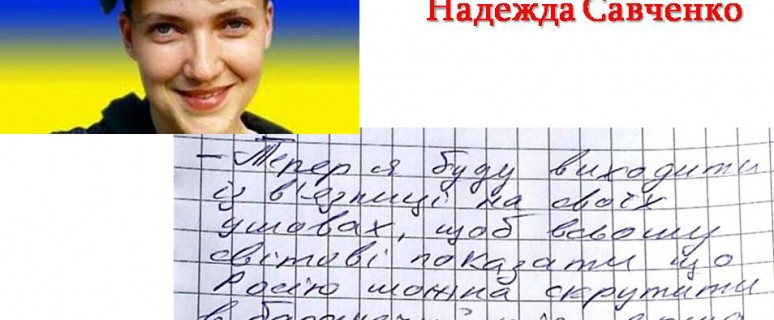 Надежда Савченко
– Тепер я буду виходити
із в'язниці на своїх
умовах, щоб всьому
світові показати що
Росію можна скрутити
в